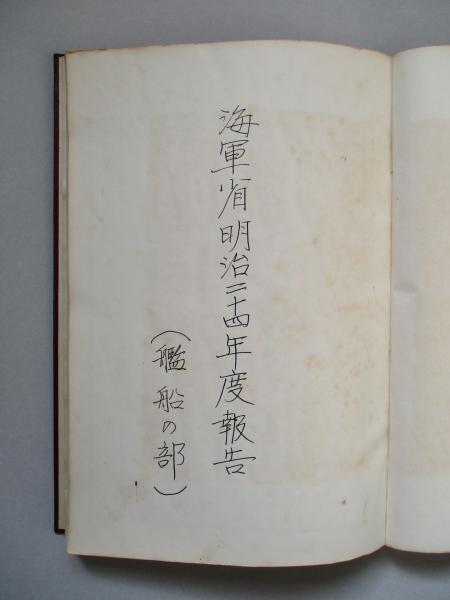 海軍省明治二十四年度報告
(艦船の部)